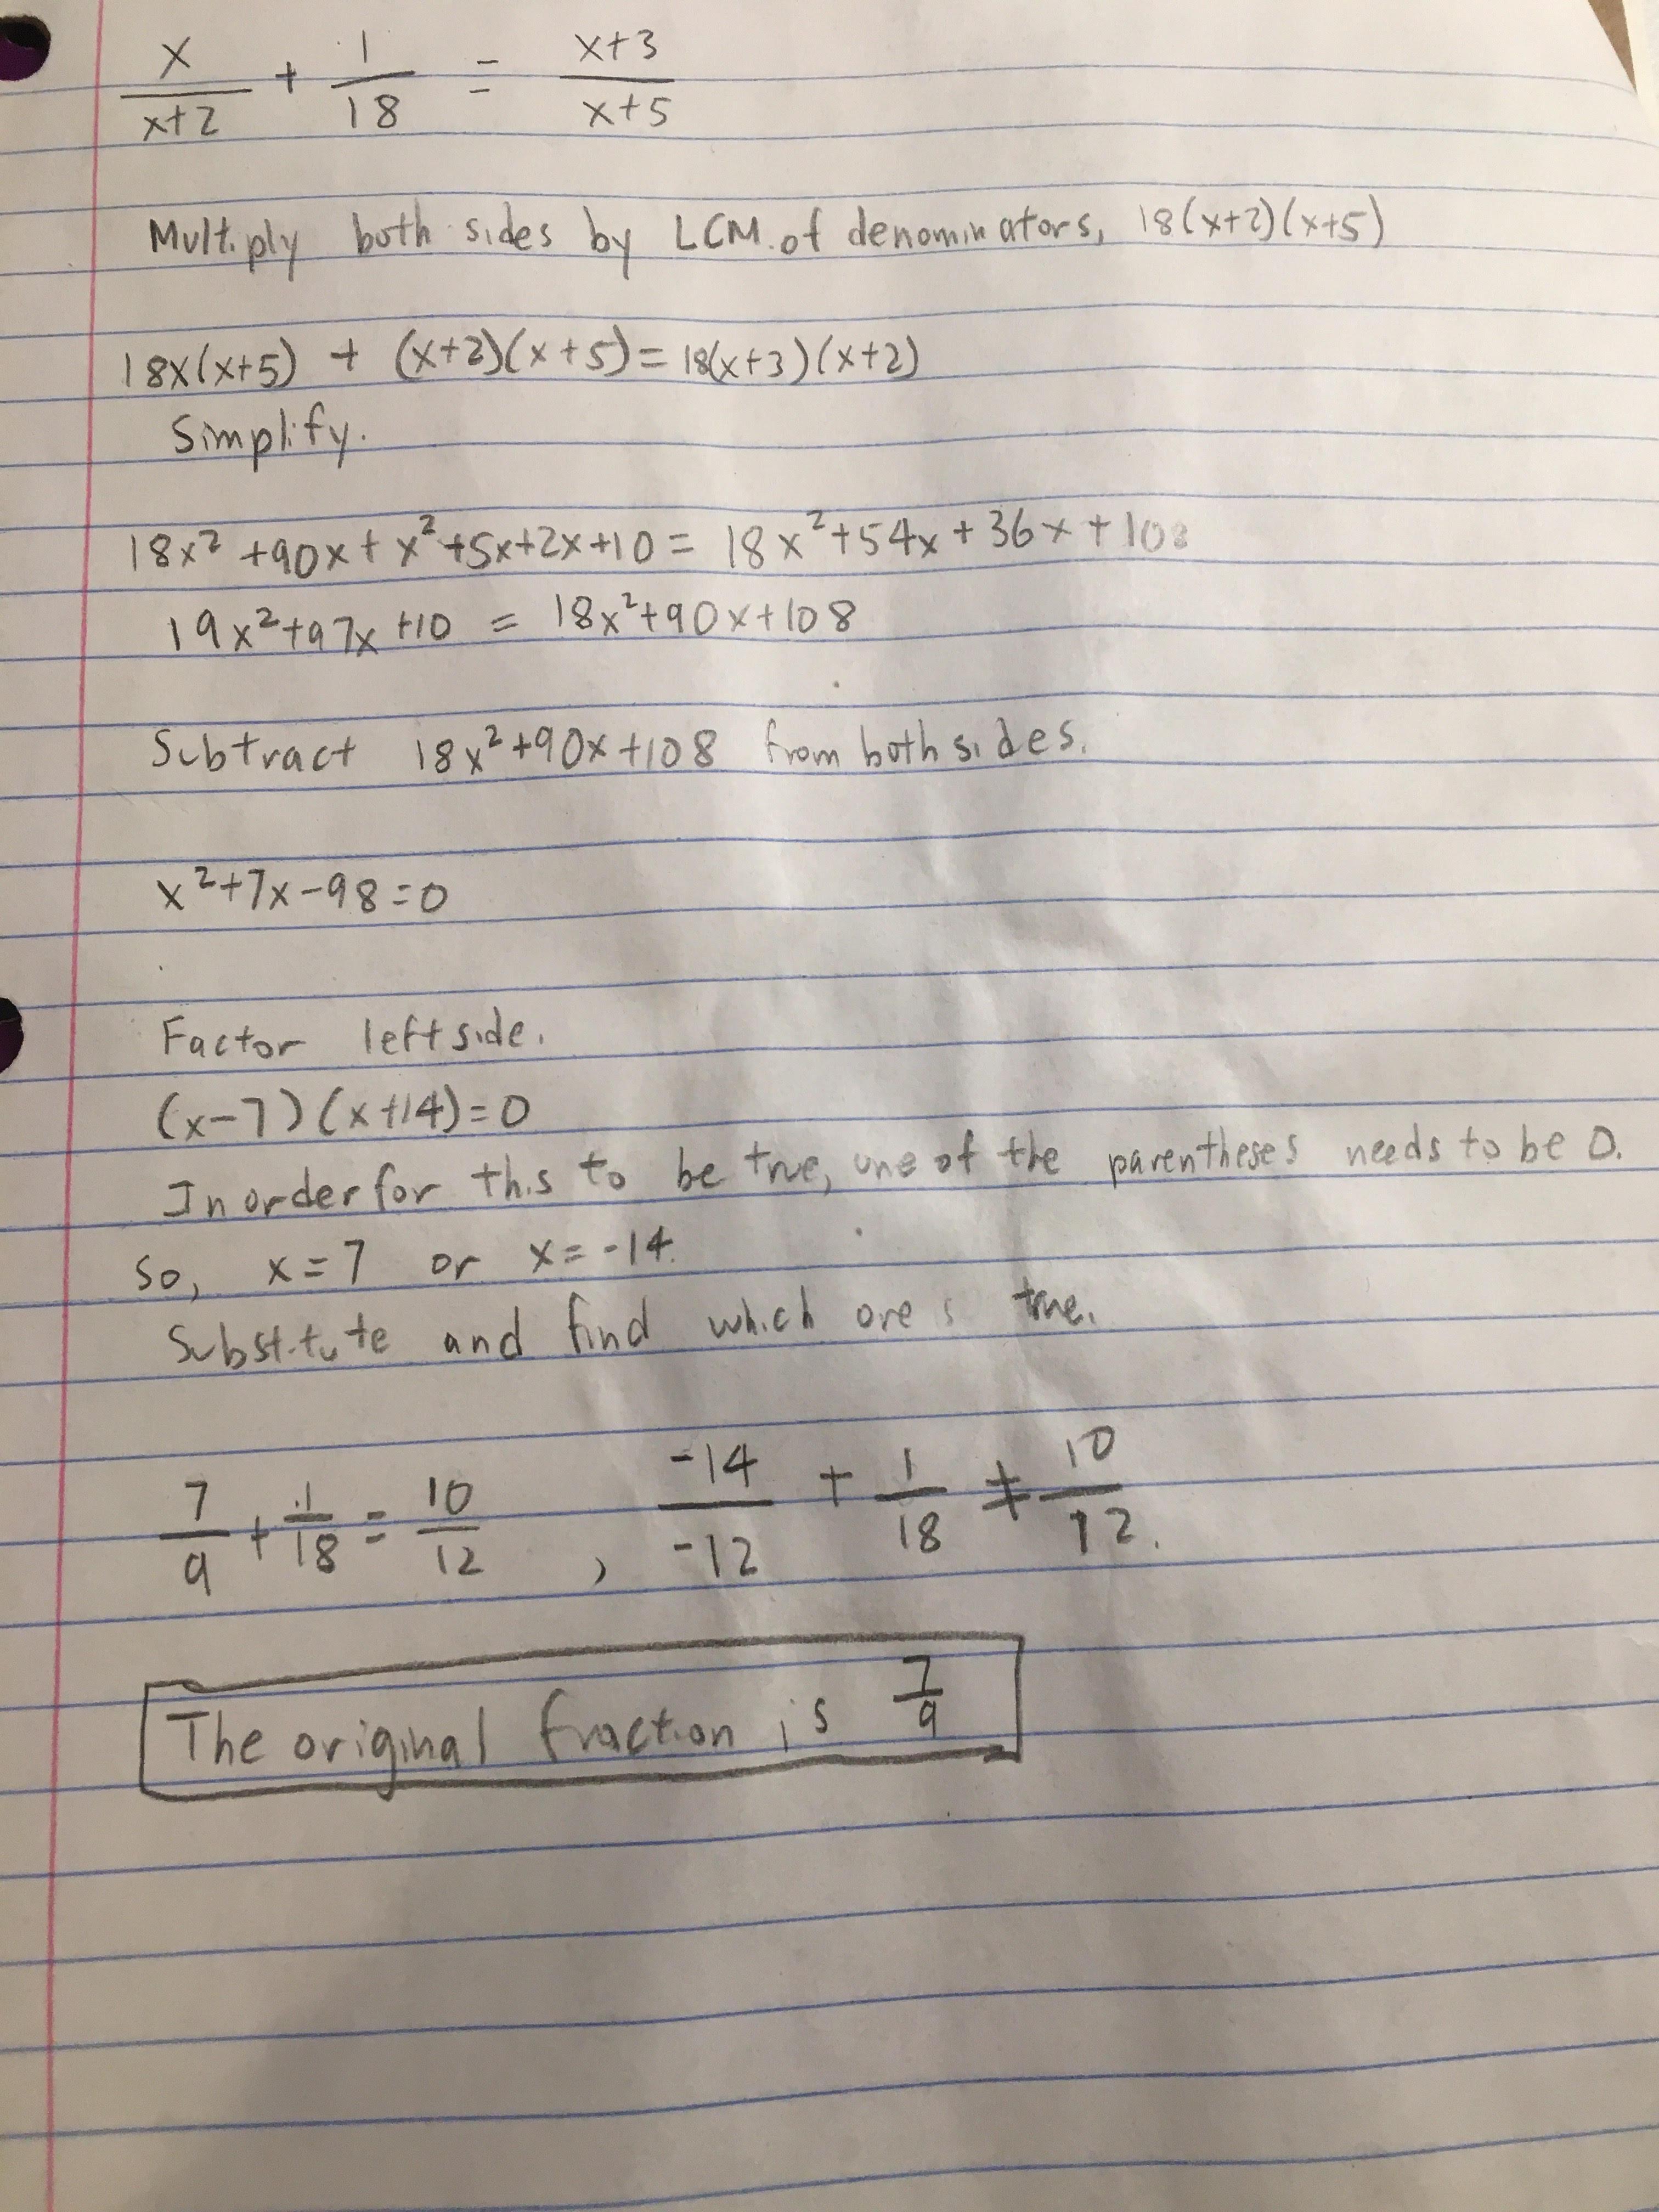 x/(x+2) + 1/18 = (x+3)/(x+5)
Multiply both sides by LCM of denominators, 18(x+2)(x+5)
18x(x+5) + (x+2)(x+5) = 18(x+3)(x+2)
Simplify.
18x² + 90x + x² + 5x + 2x + 10 = 18x² + 54x + 36x + 108
19x² + 97x + 10 = 18x² + 90x + 108
Subtract 18x² + 90x + 108 from both sides.
x² + 7x - 98 = 0
Factor left side.
(x-7)(x+14) = 0
In order for this to be true, one of the parentheses needs to be 0.
So, x = 7 or x = -14.
Substitute and find which one is true.
7/9 + 1/18 = 10/12 , -14/-12 + 1/18 ≠ 10/12.
The original fraction is 7/9